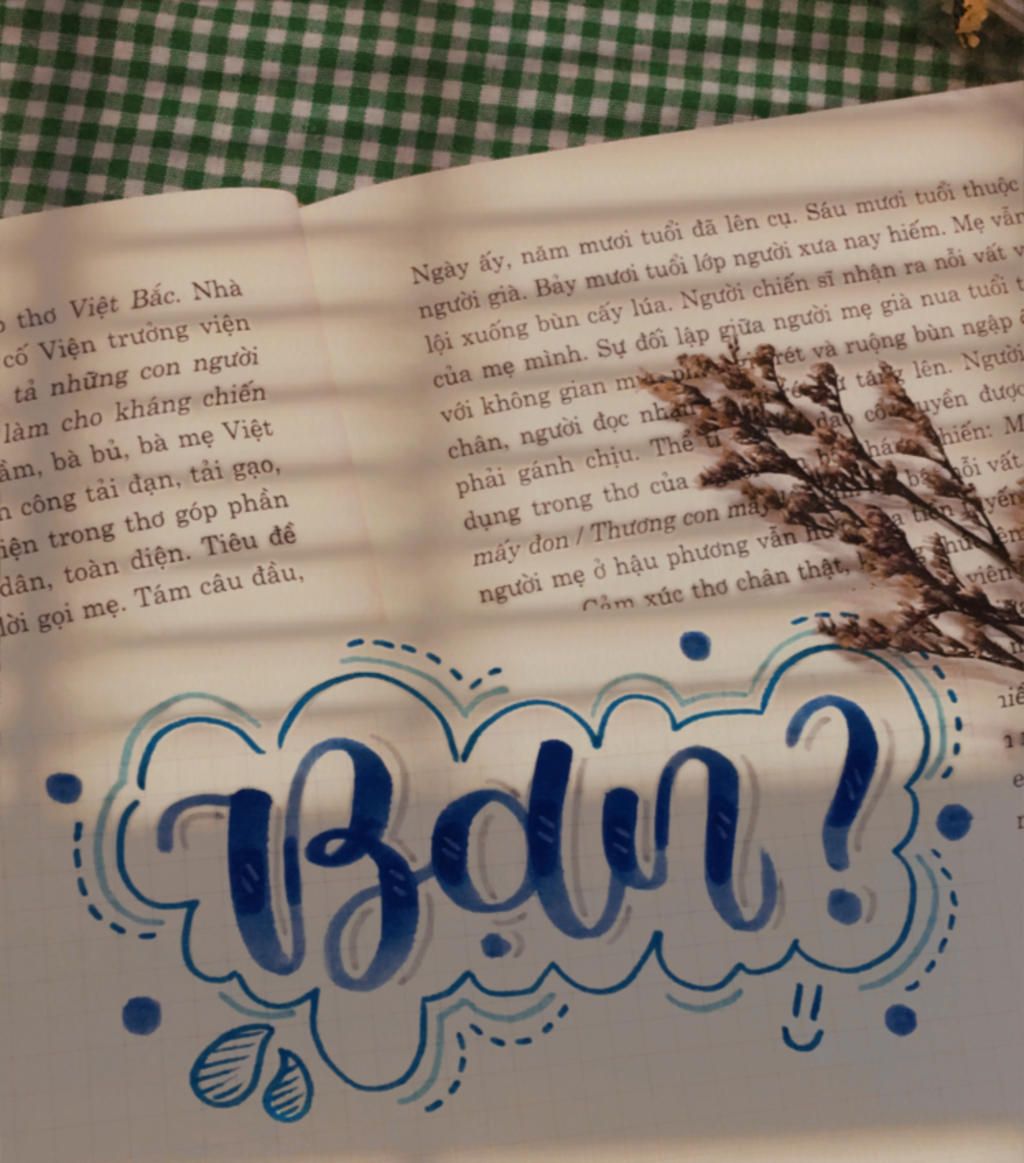 thơ Việt Bắc. Nhà
cố Viện trưởng viện
tả những con người
làm cho kháng chiến
bà bủ, bà mẹ Việt
công tải đạn, tải gạo,
trong thơ góp phần
dân, toàn diện. Tiêu đề
gọi mẹ. Tám câu đầu,
Ngày ấy, năm mươi tuổi đã lên cụ. Sáu mươi tuổi thuộc
người già. Bảy mươi tuổi lớp người xưa nay hiếm. Mẹ vẫn
lội xuống bùn cấy lúa. Người chiến sĩ nhận ra nỗi vất
của mẹ mình. Sự đối lập giữa người mẹ già nua tuổi
với không gian rét và ruộng bùn ngập
chân, người đọc tăng lên. Người
phải gánh chịu. Thế được
dụng trong thơ của chiến:
mấy đon / Thương con nỗi vất
người mẹ ở hậu phương vẫn
Cảm xúc thơ chân thật, viên
Bạn?